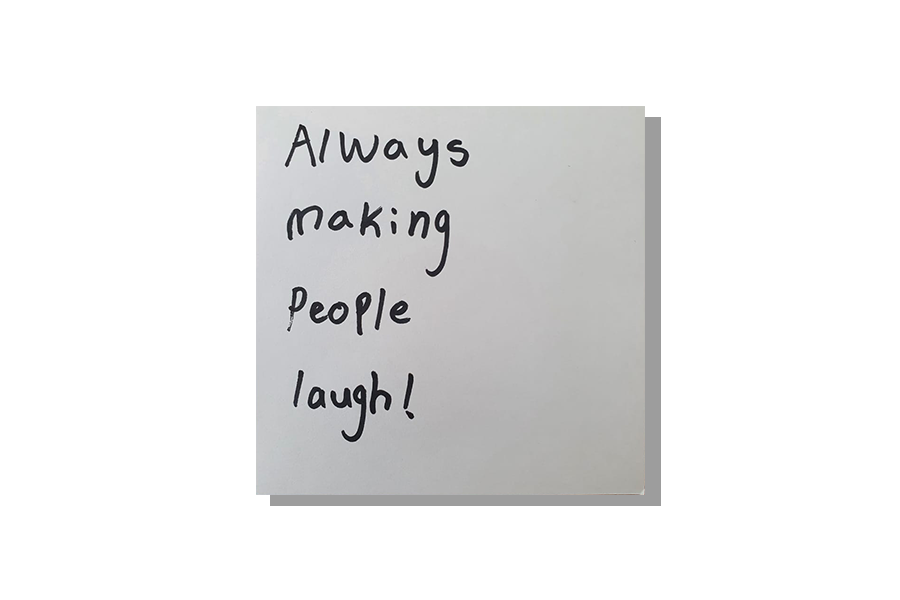 Always
making
People
laugh!